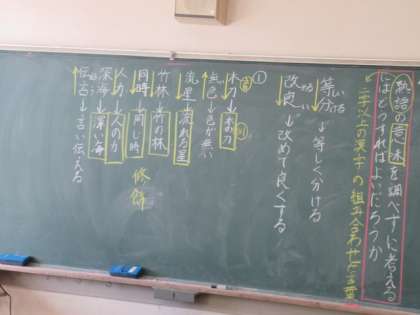 熟語の意味を調べずに考える
にはどうすればよいだろうか
二字以上の漢字の組み合わせた言葉
等分→等しく分ける
改良→改めて良くする
①
木刀→木の刀
無色→色が無い
流星→流れる星
竹林→竹の林
同時→同じ時
人力→人の力
深海→深い海
伝言→言い伝える
修飾